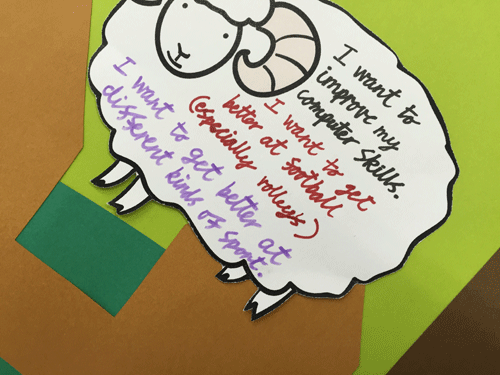 I want to
improve my
computer skills.
I want to get
better at football
(especially volleys)
I want to get better at
different kinds of sport.